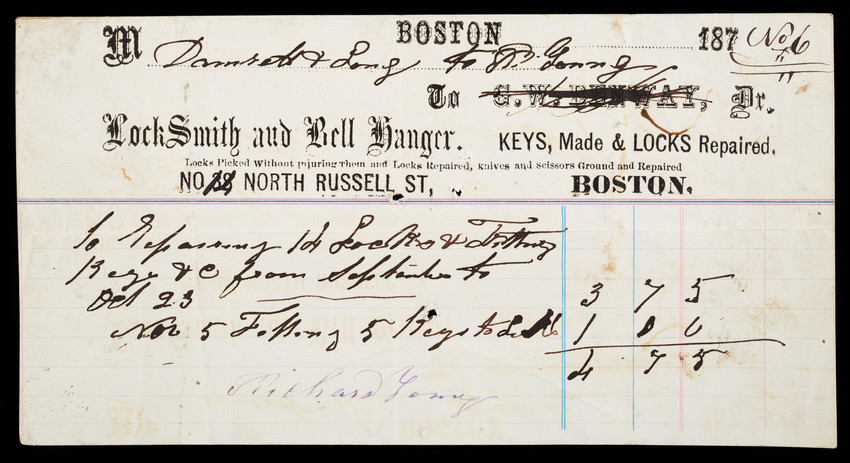 BOSTON 187 Nov 6
M Damrell & Long to R. Young
To G. W. DENWAY, Dr.
LockSmith and Bell Hanger. KEYS, Made & LOCKS Repaired.
Locks Picked Without injuring Them and Locks Repaired, Knives and Scissors Ground and Repaired
NO NORTH RUSSELL ST, BOSTON.
to Repairing 14 Locks & Fitting
Keys &c from September to
Oct 23 3 75
Nov 5 Fitting 5 Keys to 1 00
4 75
Richard Young